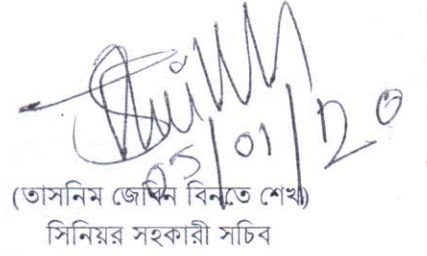 05/01/20
(তাসনিম জেবিন বিনতে শেখ)
সিনিয়র সহকারী সচিব